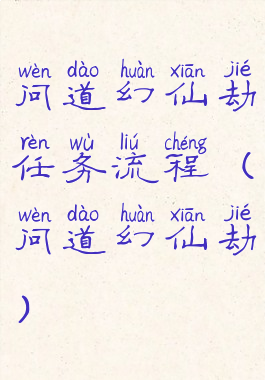 wèn dào huàn xiān jié
问道幻仙劫
rèn wù liú chéng
任务流程（
wèn dào huàn xiān jié
问道幻仙劫
）